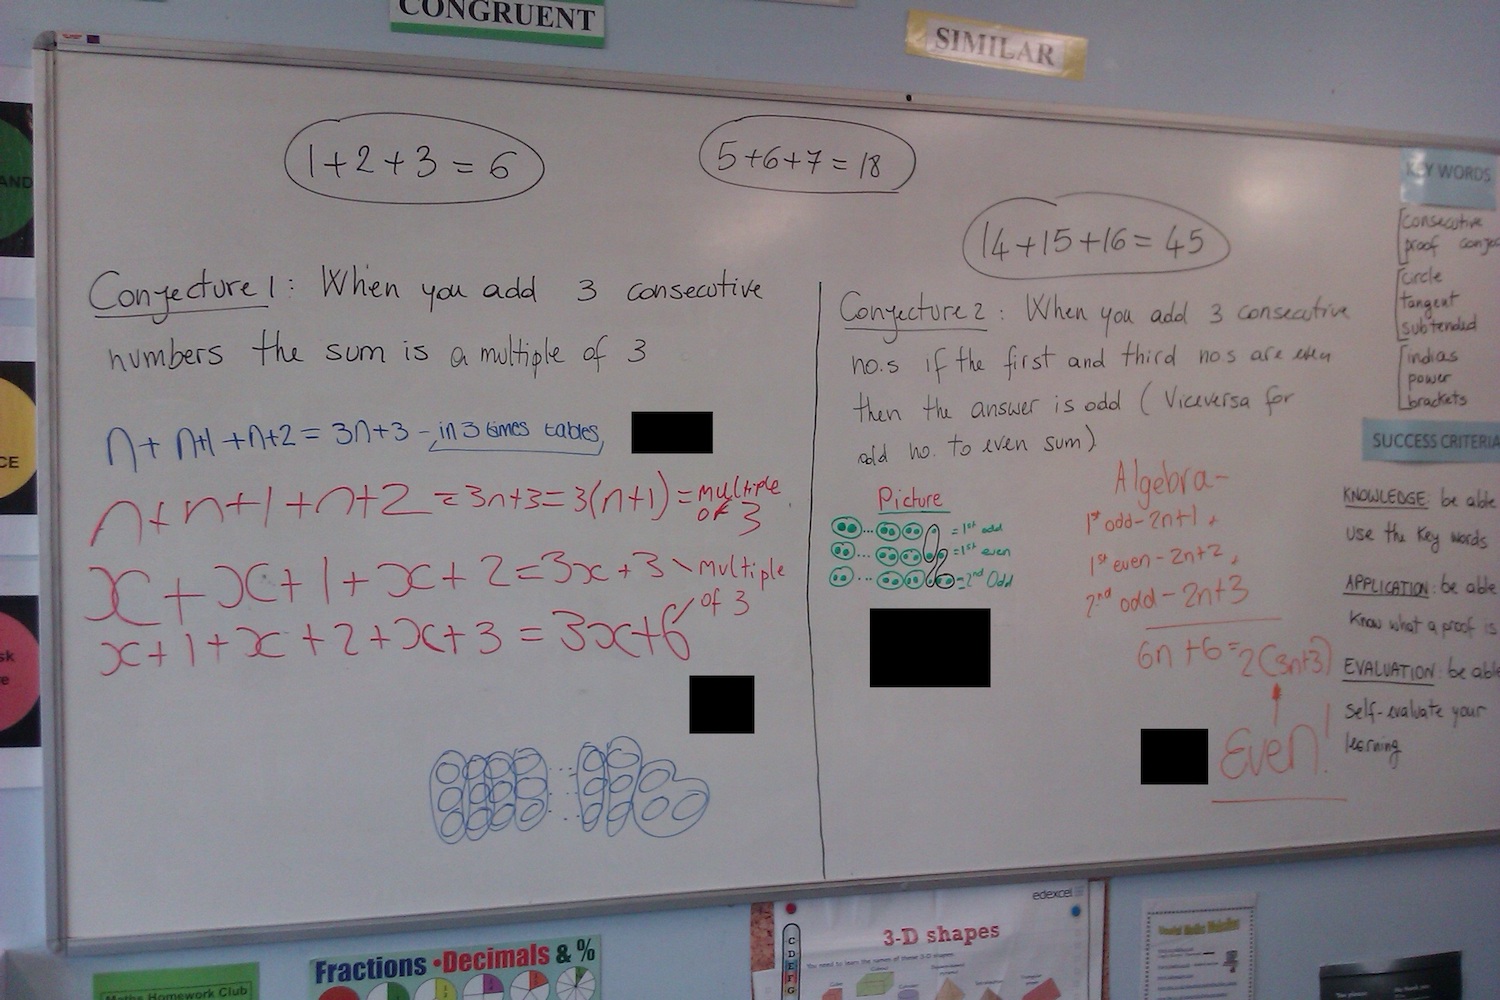 CONGRUENT
SIMILAR
1+2+3=6
5+6+7=18
14+15+16=45
Conjecture 1: When you add 3 consecutive
numbers the sum is a multiple of 3
n+ n+1 +n+2 = 3n+3 - in 3 times tables
n+n+1+n+2 = 3n+3 = 3(n+1) = multiple
of 3
x+x+1+x+2=3x+3 multiple
of 3
x+1+x+2+x+3 = 3x+6
Conjecture 2: When you add 3 consecutive
no.s if the first and third no.s are even
then the answer is odd (Viceversa for
odd no. to even sum)
Picture
= 1st odd
= 1st even
= 2nd Odd
Algebra-
1st odd-2n+1 +
1st even-2n+2 +
2nd odd-2n+3
6n+6=2(3n+3)
Even!
KEY WORDS
consecutive
proof
circle
tangent
subtended
indias
power
brackets
SUCCESS CRITERIA
KNOWLEDGE: be able
use the key words
APPLICATION: be able
know what a proof is
EVALUATION: be able
self-evaluate your
learning
AND
CE
sk
e
Maths Homework Club
Fractions • Decimals & %
edexcel
3-D shapes
You need to learn the names of these 3-D shapes
C
D
E
F
G